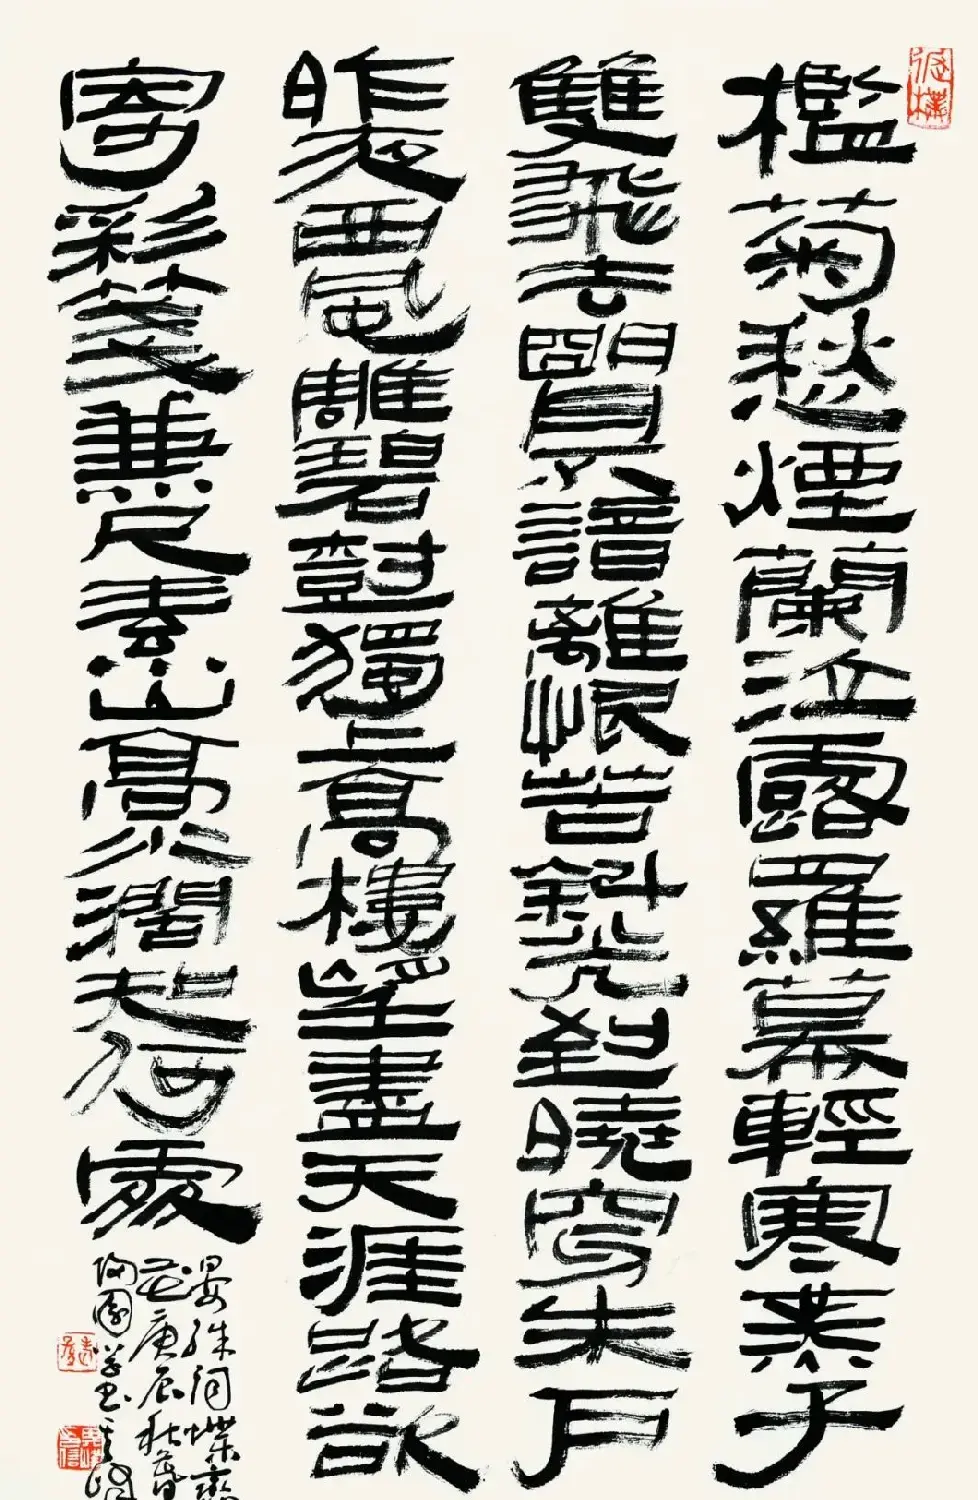 檻菊愁煙蘭泣露羅幕輕寒燕子
雙飛去朙月不諳離恨苦斜光到曉穿朱戶
昨夜西風雕碧尌獨上高樓望盡天涯路欲
寄彩箋兼尺素山高水濶知何處
晏殊詞蝶戀
花庚辰秋
園